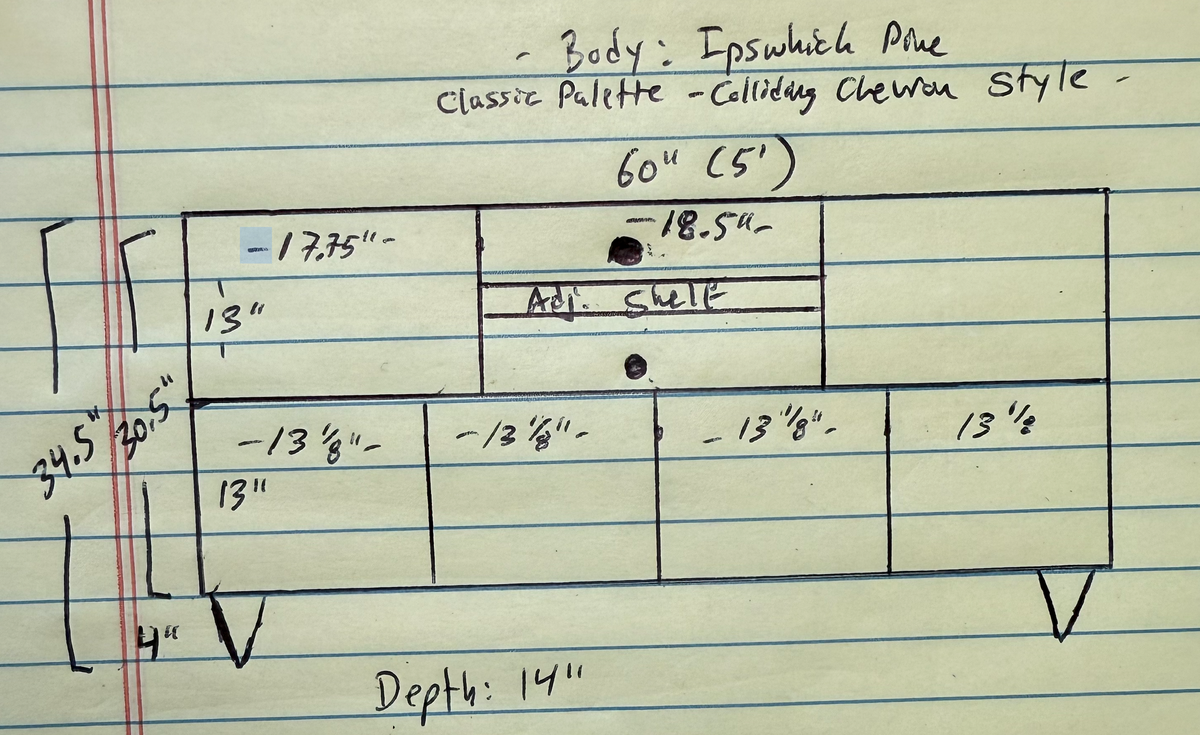 - Body: Ipswhich Pine
Classic Palette - Colliding Chevron Style -
60" (5')
-17.75"-
-18.5"-
13"
Adj. Shelf
34.5"
30.5"
-13 1/8"-
-13 1/8"-
-13 1/8"-
13 1/8
13"
4"
Depth: 14"